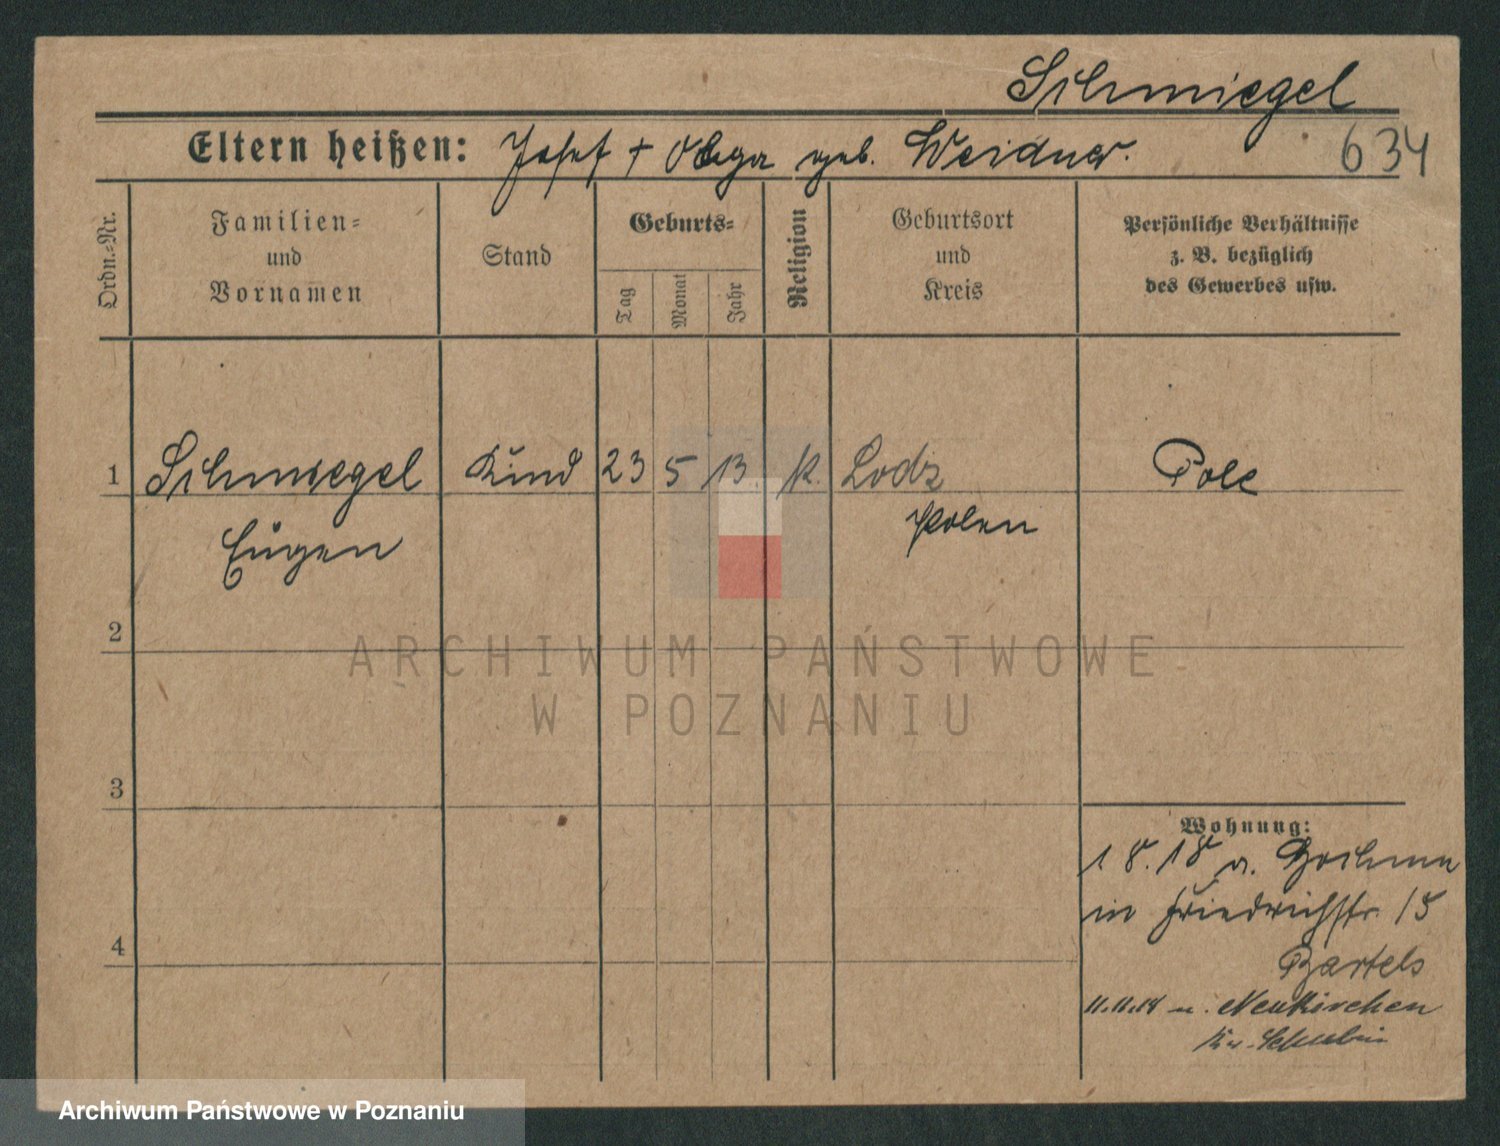 Schmiegel
Eltern heißen: Josef + Olga geb. Weidner.
634
Ordn.-Nr.
Familien-
und
Vornamen
Stand
Geburts-
Tag
Monat
Jahr
Religion
Geburtsort
und
Kreis
Persönliche Verhältnisse
z. B. bezüglich
des Gewerbes usw.
1 Schmiegel Kind 23 5 13 k. Lodz Pole
Eugen Polen
2
ARCHIWUM PAŃSTWOWE
W POZNANIU
3
Wohnung:
1 8. 18 v. Bochum
in Friedrichstr. 15
4
Bartels
11.11.18 n. Neukirchen
Kr. Schubin
Archiwum Państwowe w Poznaniu